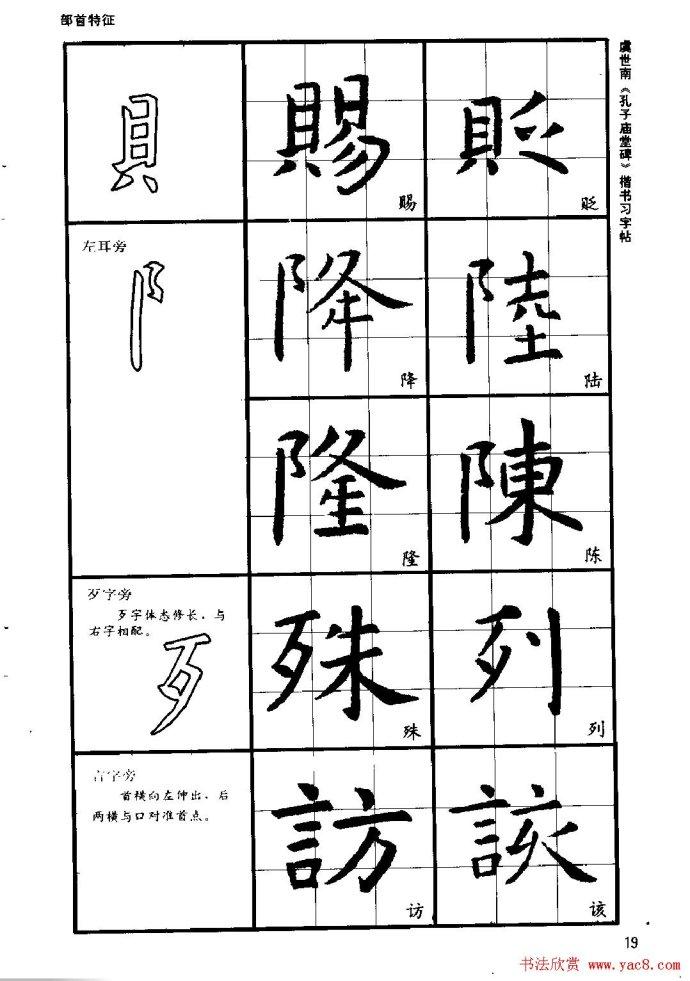 部首特征
虞世南《孔子庙堂碑》楷书习字帖
賜
赐
貶
贬
左耳旁
阝
降
降
陸
陆
隆
隆
陳
陈
歹字旁
歹字体态修长，与
右字相配。
歹
殊
殊
列
列
言字旁
首横向左伸出，后
两横与口对准首点。
訪
访
該
该
19
书法欣赏 www.yac8.com